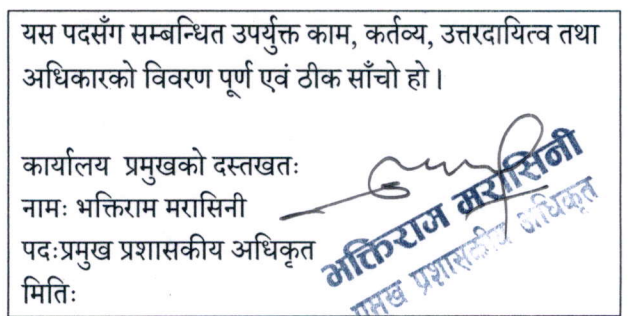 यस पदसँग सम्बन्धित उपर्युक्त काम, कर्तव्य, उत्तरदायित्व तथा
अधिकारको विवरण पूर्ण एवं ठीक साँचो हो ।
कार्यालय प्रमुखको दस्तखतः
नामः भक्तिराम मरासिनी
पदःप्रमुख प्रशासकीय अधिकृत
मितिः
भक्तिराम मरासिनी
प्रमुख प्रशासकीय अधिकृत